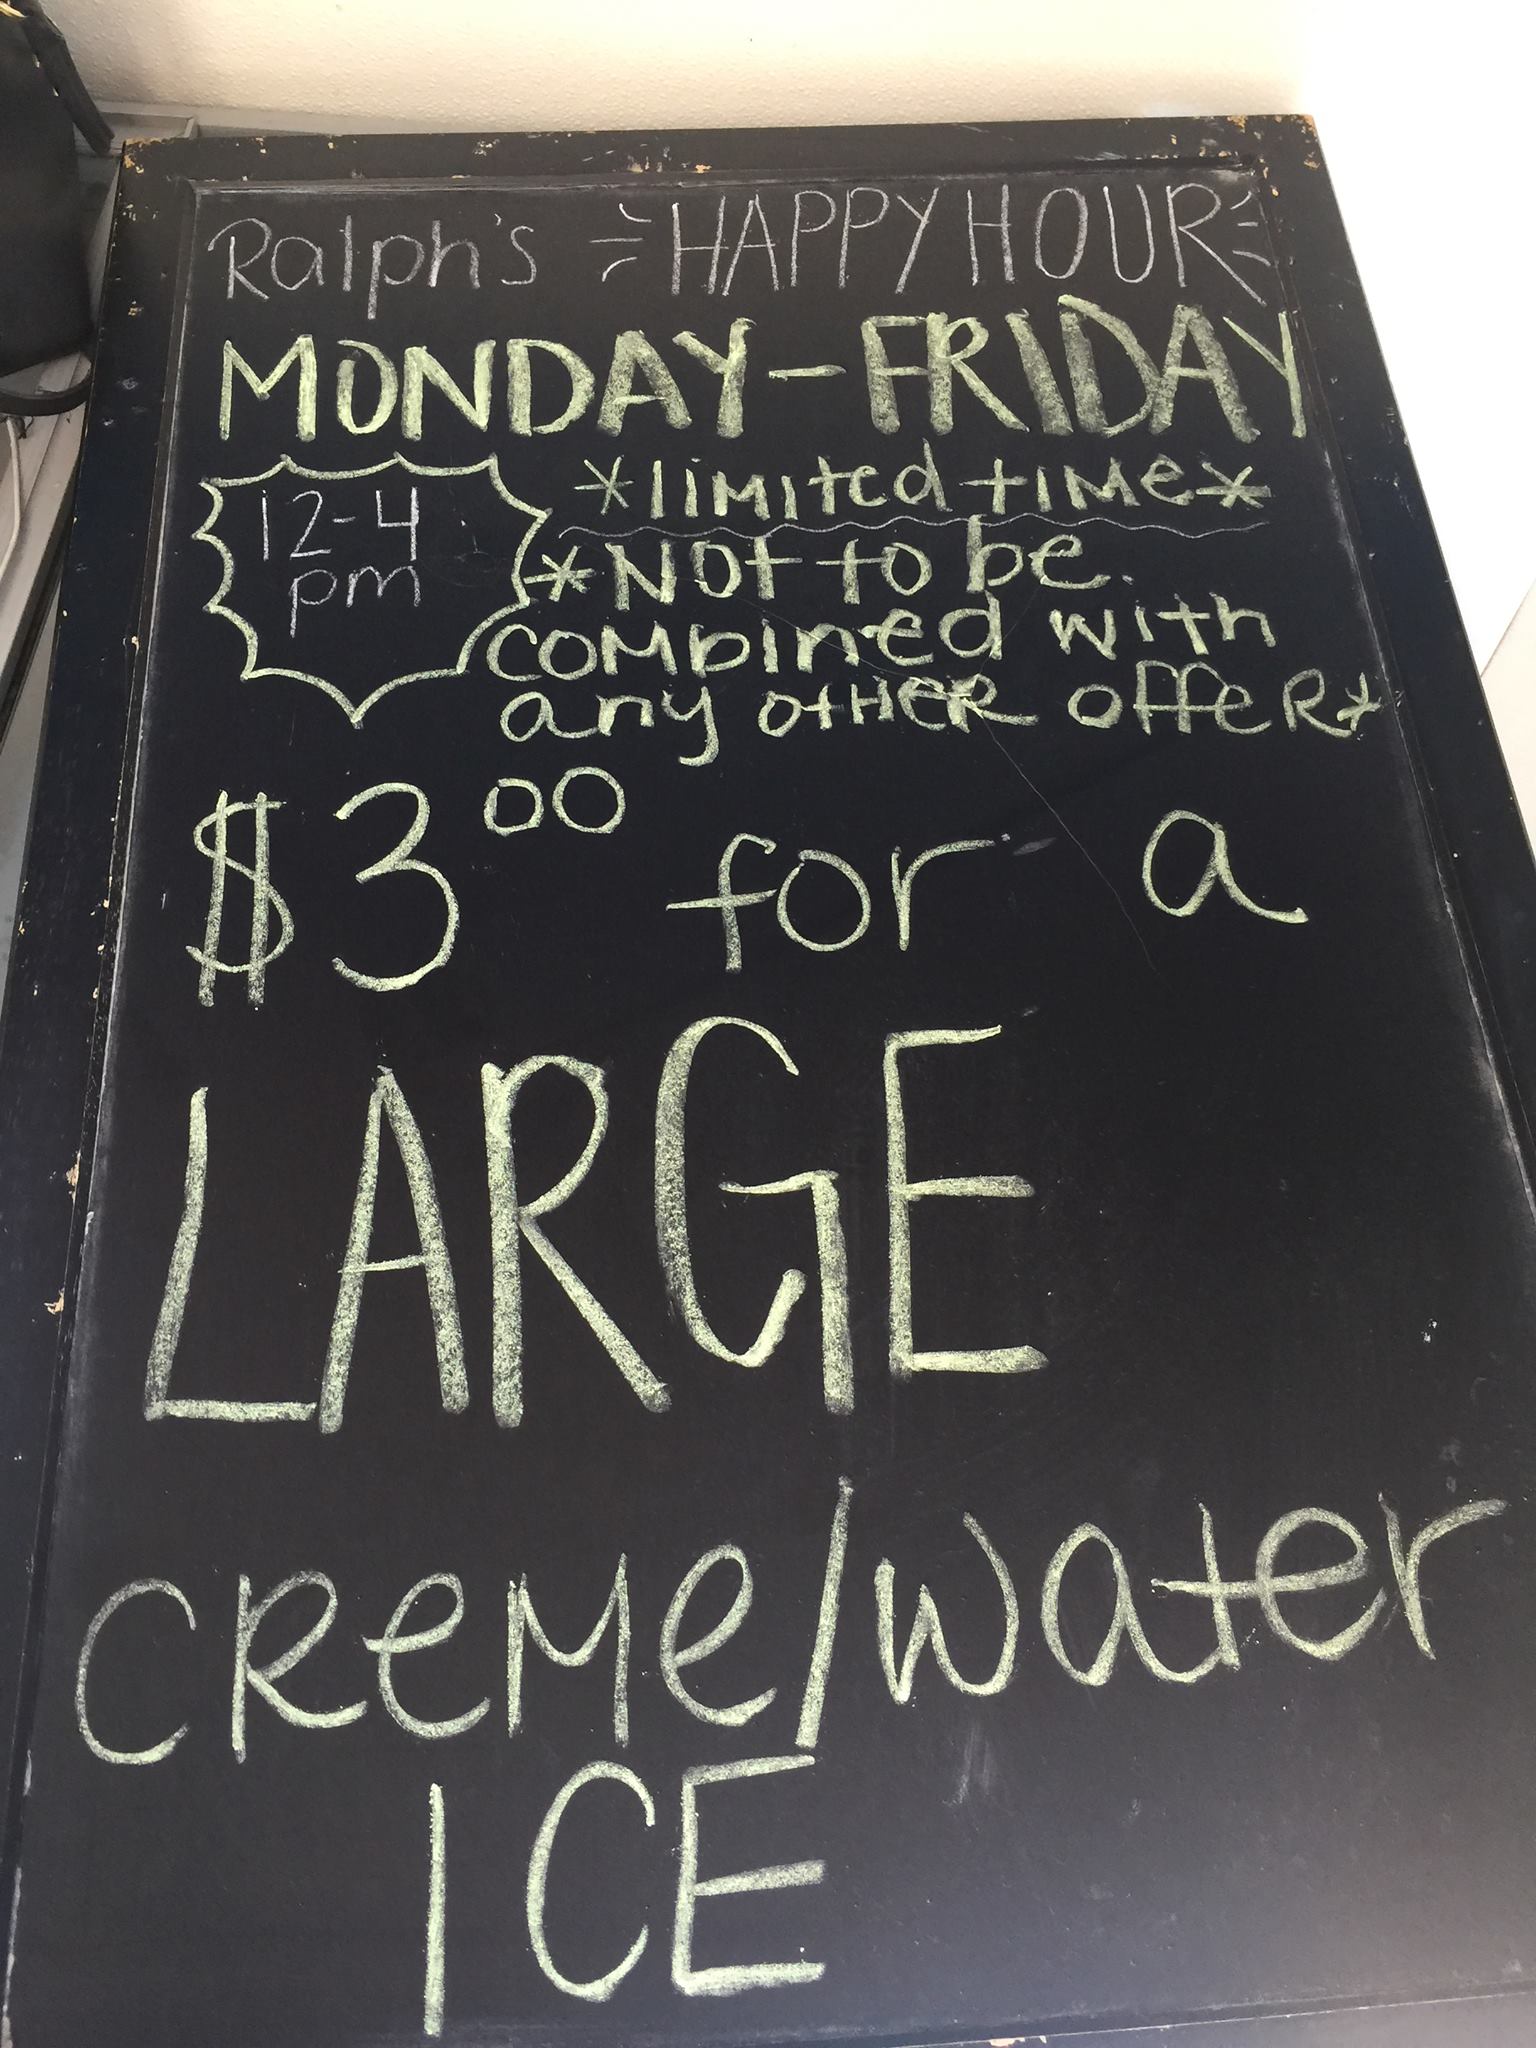 Ralph's HAPPY HOUR
MONDAY-FRIDAY
12-4
pm
*limited time*
*Not to be
combined with
any other offer*
$3.00 for a
LARGE
creme/water
ICE